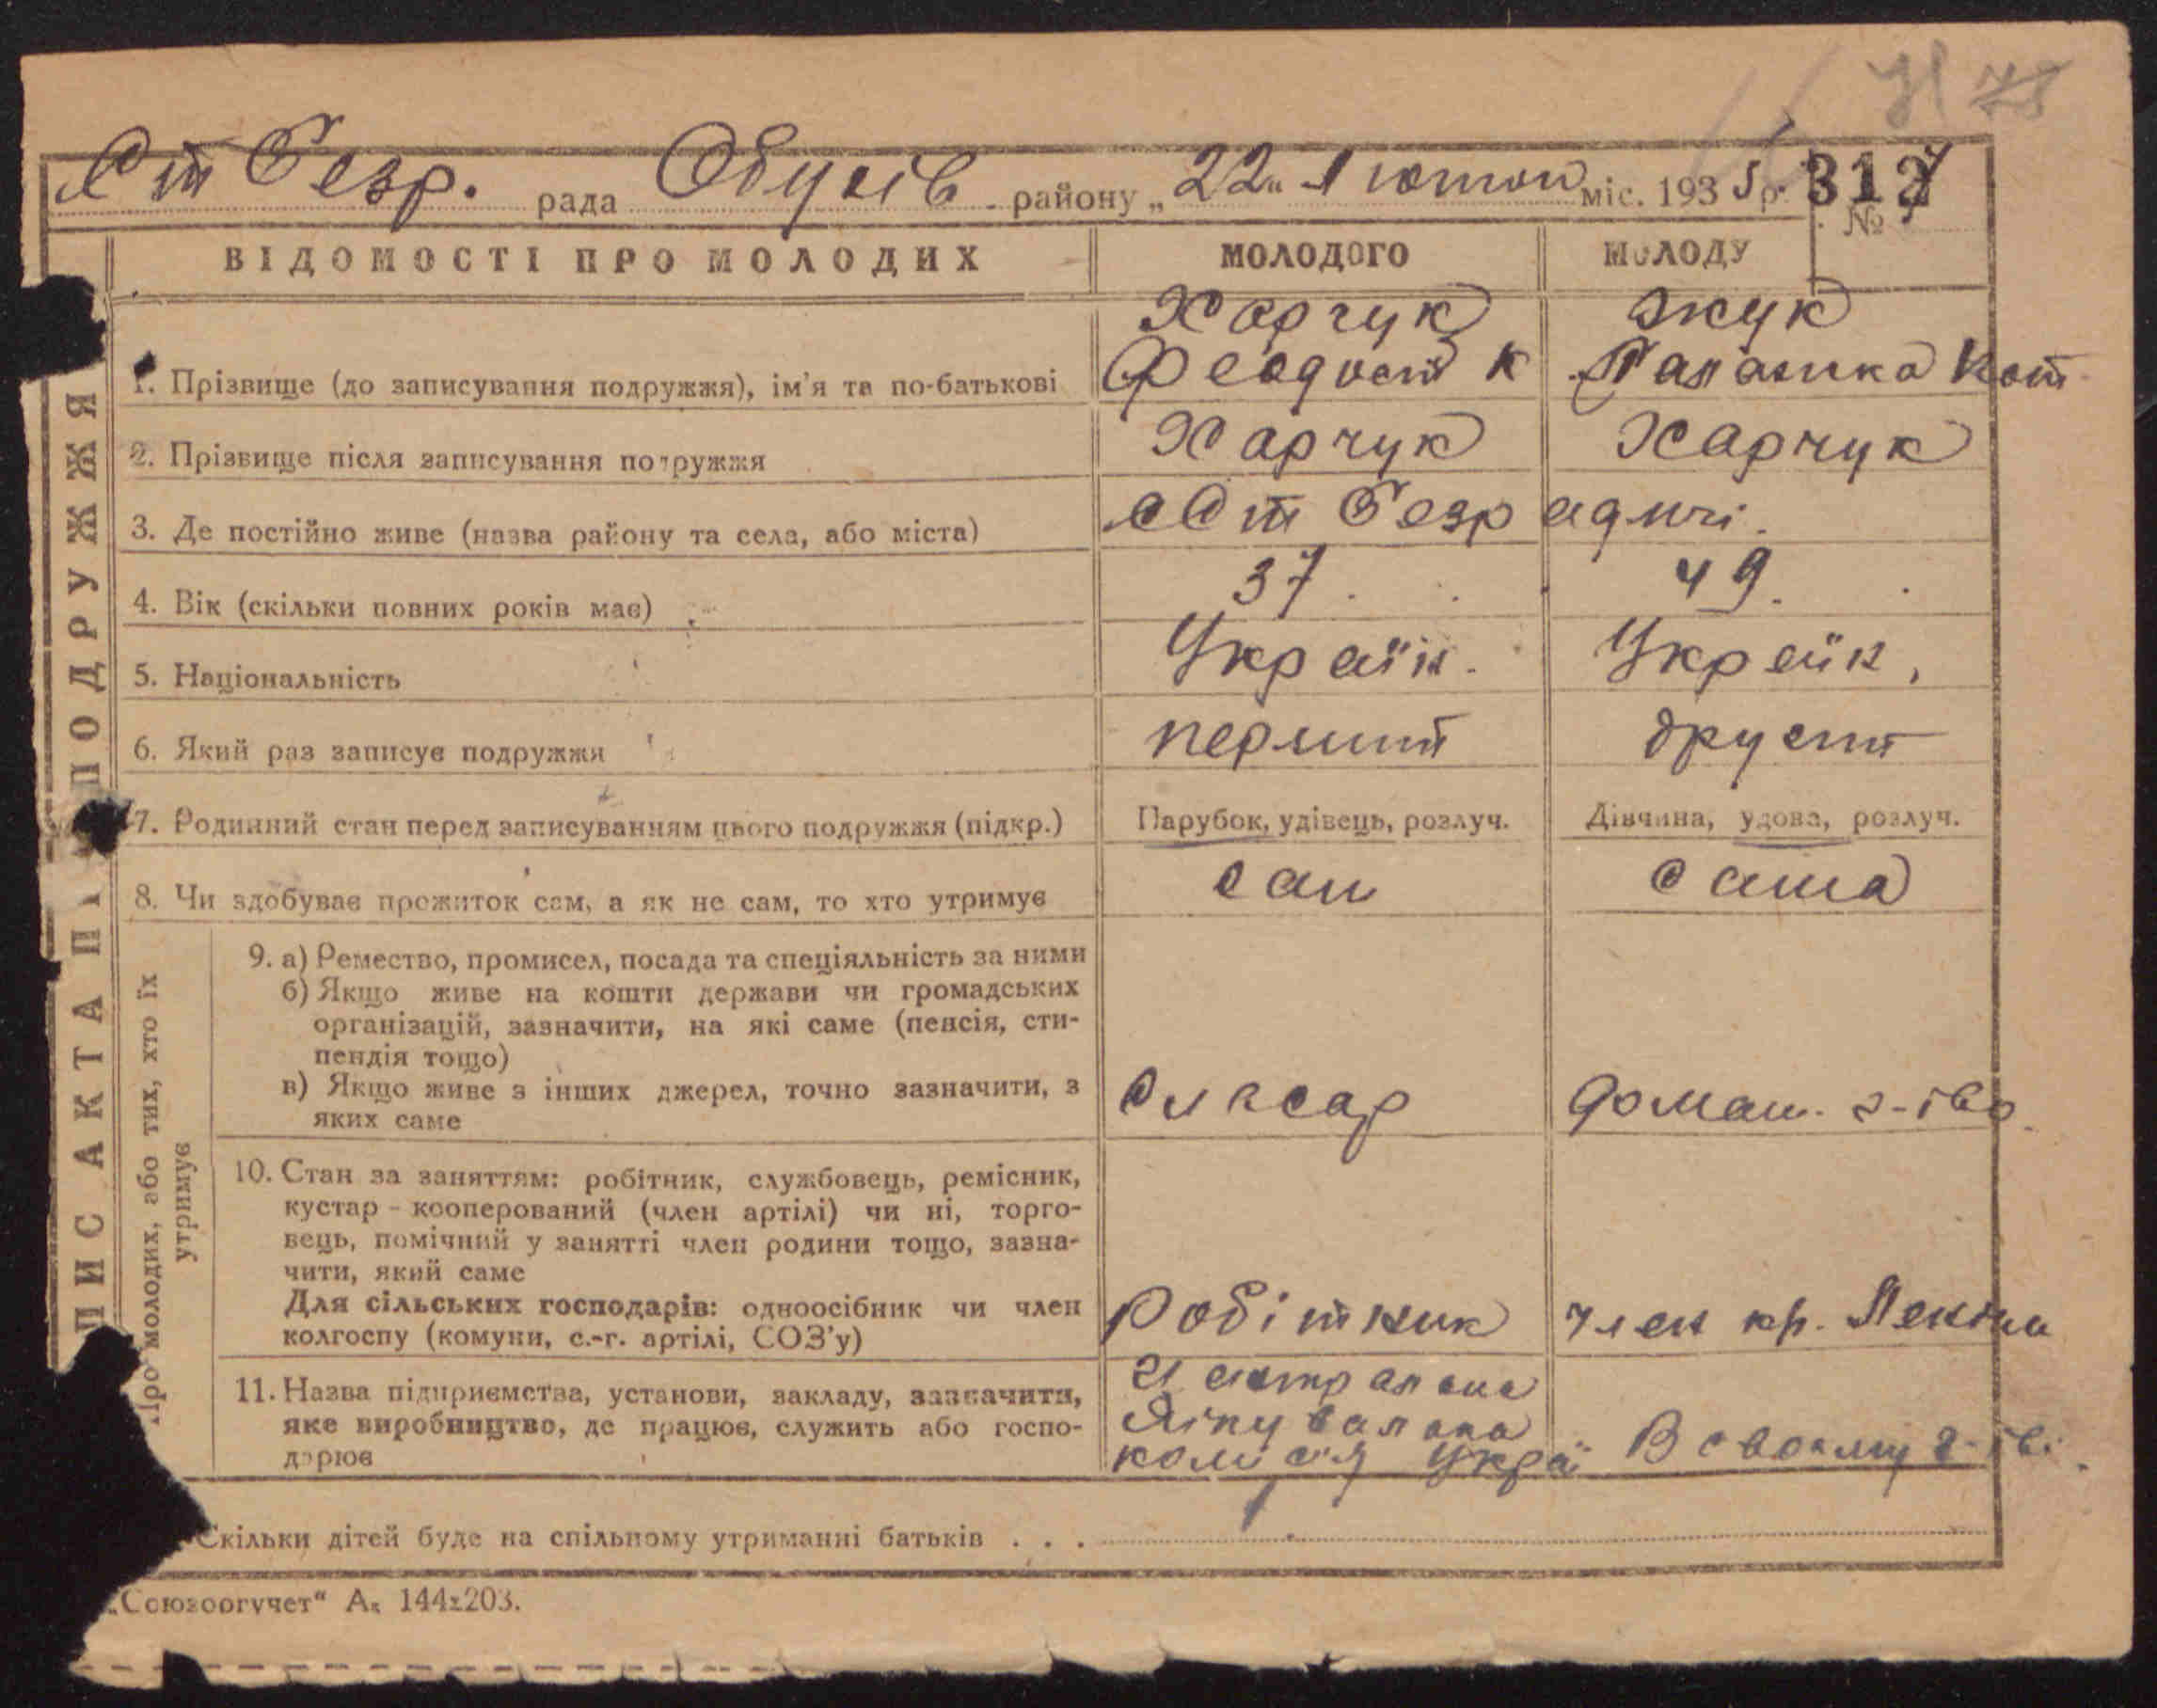 Ст Безр. рада Обухів. району „22" Лютого міс. 1935 р. № 7
317
ВІДОМОСТІ ПРО МОЛОДИХ
МОЛОДОГО
МОЛОДУ
1. Прізвище (до записування подружжя), ім'я та по-батькові
Харчук
К
Жук
2. Прізвище після записування подружжя
Харчук
Харчук
3. Де постійно живе (назва району та села, або міста)
с Ст Безрадичі.
4. Вік (скільки повних років має)
37.
49.
5. Національність
Україн.
Україн.
6. Який раз записує подружжя
перший
другий
7. Родинний стан перед записуванням цього подружжя (підкр.)
Парубок, удівець, розлуч.
Дівчина, удова, розлуч.
8. Чи здобуває прожиток сам, а як не сам, то хто утримує
сам
сама
9. а) Ремество, промисел, посада та спеціяльність за ними
б) Якщо живе на кошти держави чи громадських
організацій, зазначити, на які саме (пенсія, сти-
пендія тощо)
в) Якщо живе з інших джерел, точно зазначити, з
яких саме
слєсар
домаш. г-тво
10. Стан за заняттям: робітник, службовець, ремісник,
кустар - кооперований (член артілі) чи ні, торго-
вець, помічний у занятті член родини тощо, зазна-
чити, який саме
Для сільських господарів: одноосібник чи член
колгоспу (комуни, с.-г. артілі, СОЗ'у)
Робітник
член кр. Леніна
11. Назва підприємства, установи, закладу, зазначити,
яке виробництво, де працює, служить або госпо-
дарює
Лікувальна
комісія Украї
В своєму г-тві.
Скільки дітей буде на спільному утриманні батьків . . .
ПИС АКТА П ПОДРУЖЖЯ
Про молодих, або тих, хто їх
утримує
„Союзоргучет" А5 144х203.